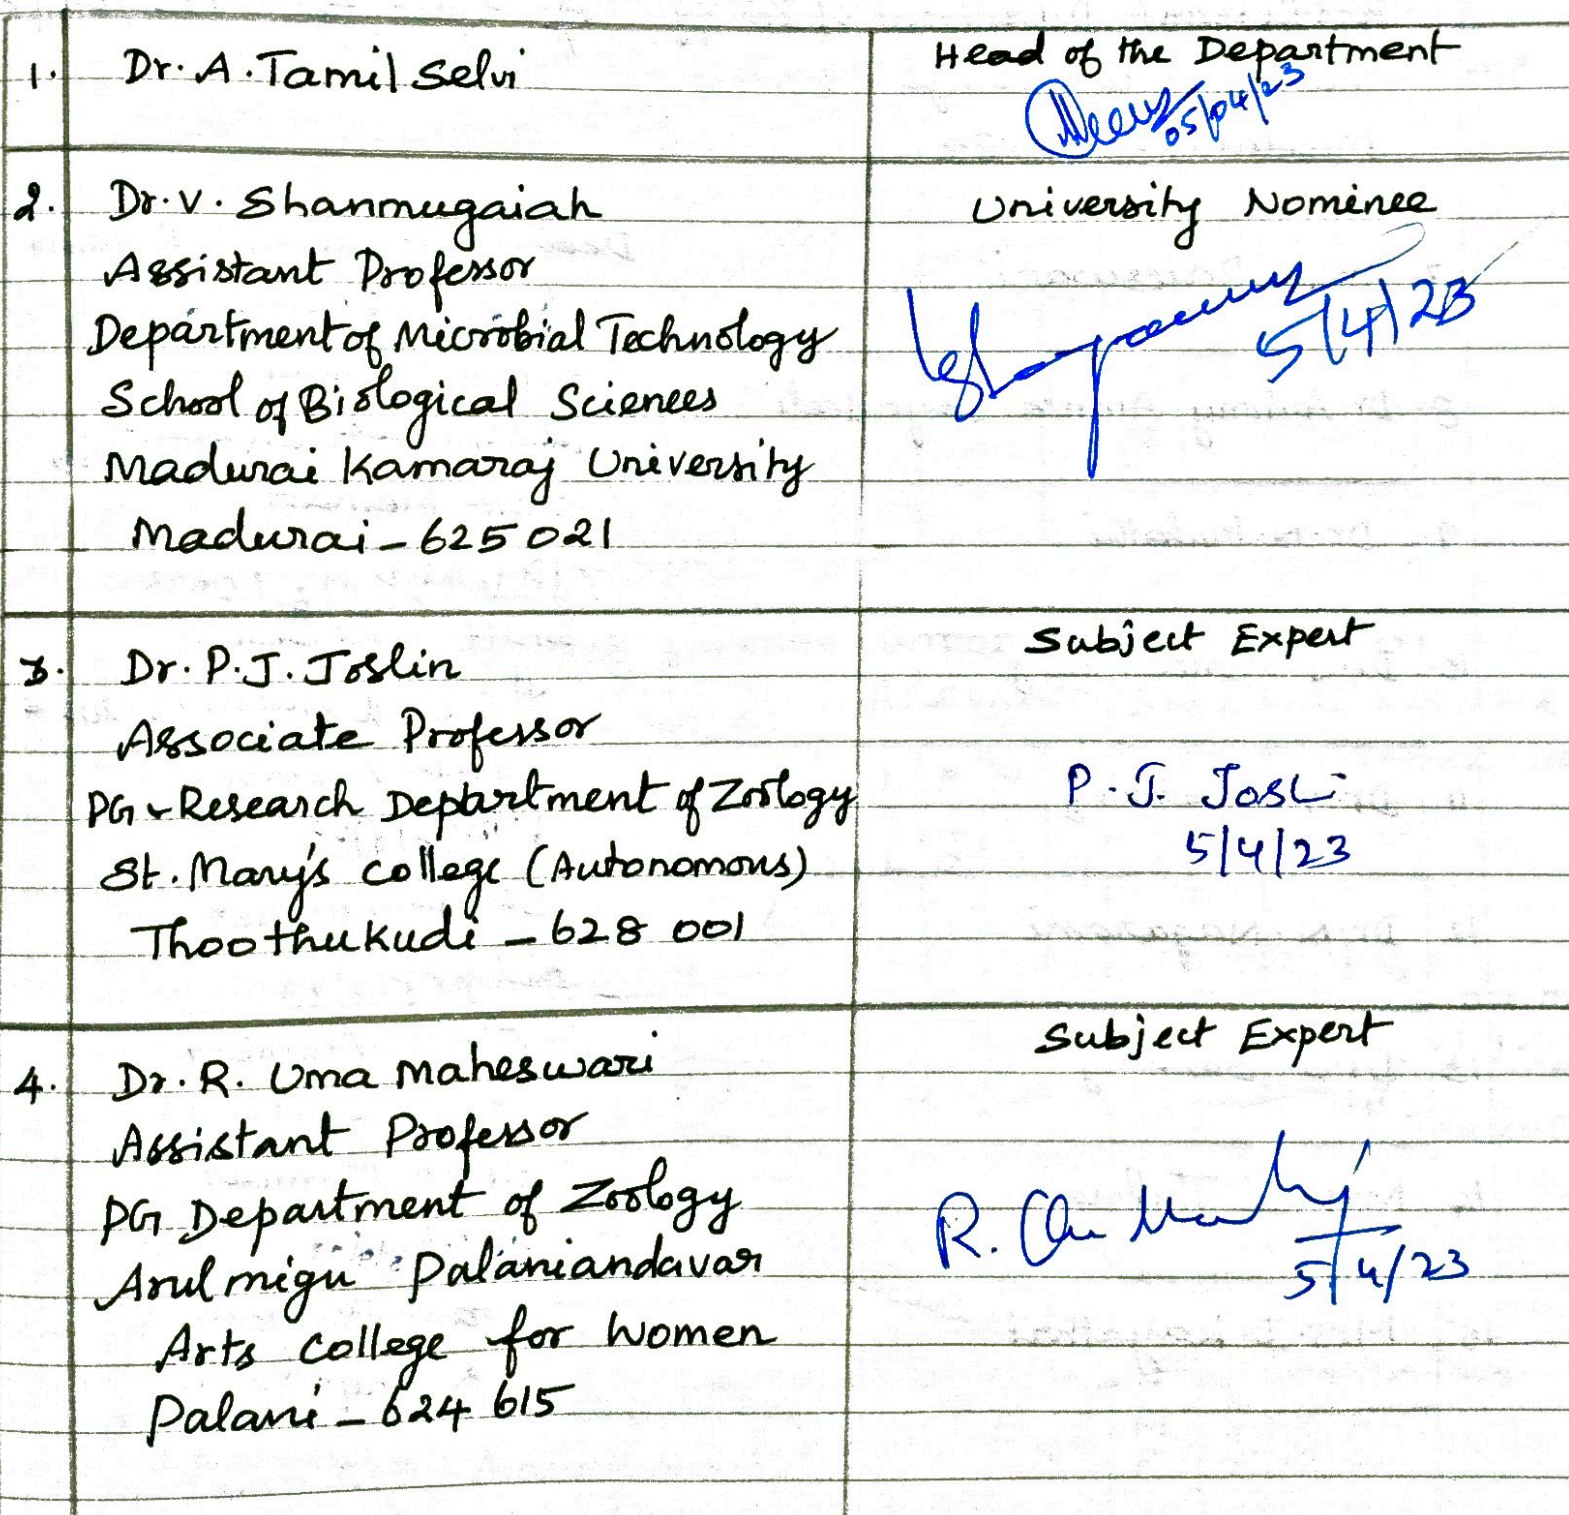 1. Dr. A. Tamil Selvi
Head of the Department
05/04/23
2. Dr. V. Shanmugaiah
University Nominee
Assistant Professor
Department of Microbial Technology
5/4/23
School of Biological Sciences
Madurai Kamaraj University
Madurai - 625 021
Subject Expert
3. Dr. P. J. Joslin
Associate Professor
PG & Research Department of Zoology
P. J. Josli
St. Mary's College (Autonomous)
5/4/23
Thoothukudi - 628 001
Subject Expert
4. Dr. R. Uma Maheswari
Assistant Professor
PG Department of Zoology
R.
Arulmigu Palaniandavar
5/4/23
Arts College for Women
Palani - 624 615